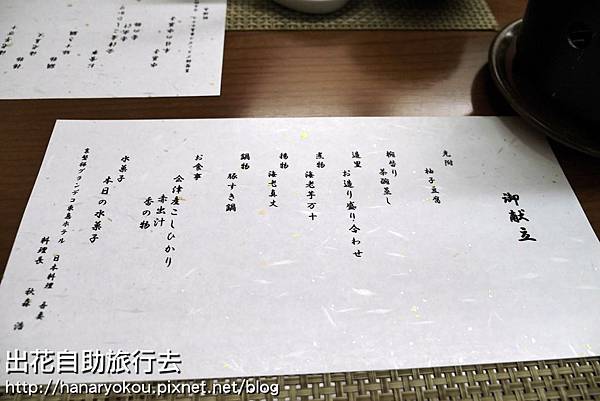 御献立
先附
柚子豆腐
椀替り
茶碗蒸し
造里
お造り盛り合わせ
煮物
海老芋万十
揚物
海老真丈
鍋物
豚すき鍋
お食事
会津産こしひかり
赤出汁
香の物
水菓子
本日の水菓子
裏磐梯グランデコ東急ホテル 日本料理
料理長 秋森 浩
出花自助旅行去
http://hanaryokou.pixnet.net/blog